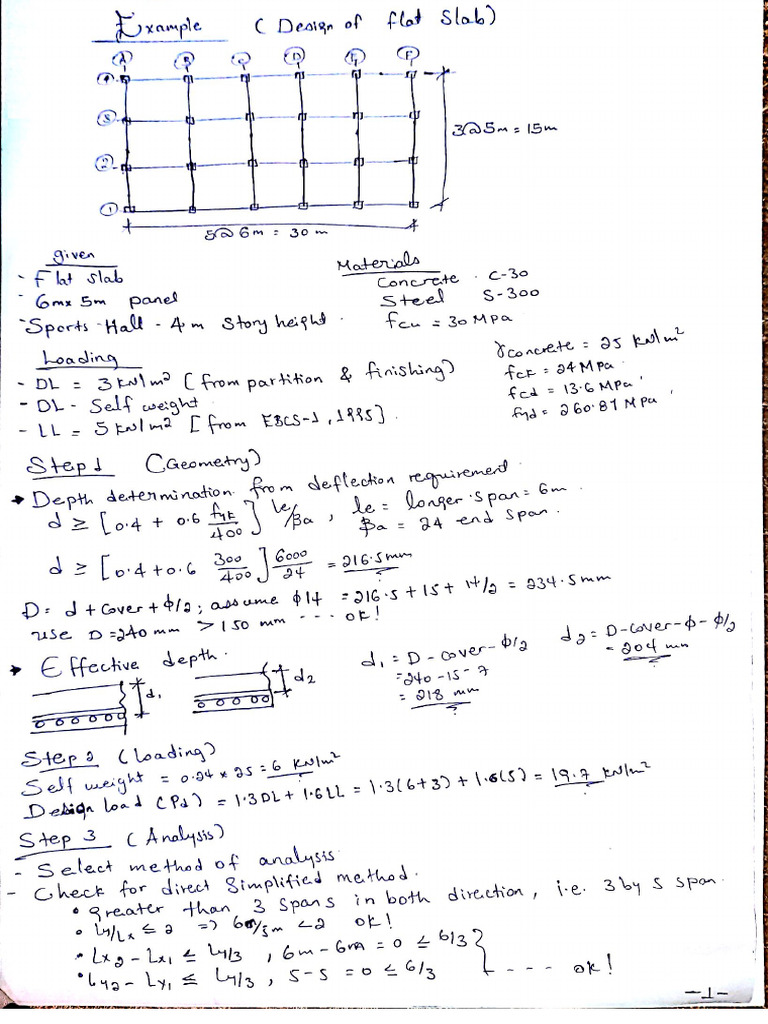 Example (Design of flat slab)
A B C D E F
4
3
2
1
3@5m = 15m
5@6m = 30m
given
- Flat slab
- 6mx 5m panel
- Sports-Hall - 4m story height.
Materials
Concrete . C-30
Steel S-300
fcu = 30 MPa
Loading
- DL = 3 kN/m² [from partition & finishing)
- DL - Self weight
- LL = 5 kN/m² [from EBCS-1, 1995].
γconcrete = 25 kN/m²
fck = 24 MPa.
fcd = 13.6 MPa,
fyd = 260.87 MPa
Step 1 (Geometry)
→ Depth determination from deflection requirement
d ≥ [0.4 + 0.6 fyk/400] le/βa , le = longer span = 6m
βa = 24 end span.
d ≥ [0.4+0.6 300/400] 6000/24 = 216.5mm
D = d + cover + ϕ/2; assume ϕ14 = 216.5 + 15 + 14/2 = 234.5mm
use D=240 mm > 150 mm --- ok!
→ Effective depth.
d1
d2
d1 = D - cover - ϕ/2
= 240 - 15 - 7
= 218 mm
d2 = D-cover-ϕ-ϕ/2
= 204 mm
Step 2 (loading)
Self weight = 0.24 * 25 = 6 kN/m²
Design load (Pd) = 1.3DL + 1.6LL = 1.3(6+3) + 1.6(5) = 19.7 kN/m²
Step 3 (Analysis)
- Select method of analysis
- Check for direct simplified method.
• greater than 3 spans in both direction, i.e. 3 by 5 span.
• Ly/Lx ≤ 2 => 6m/5m < 2 ok!
• Lx2 - Lx1 ≤ Ly/3 , 6m - 6m = 0 ≤ 6/3
• Ly2 - Ly1 ≤ Ly/3 , 5-5 = 0 ≤ 6/3 } ---- ok!
-1-